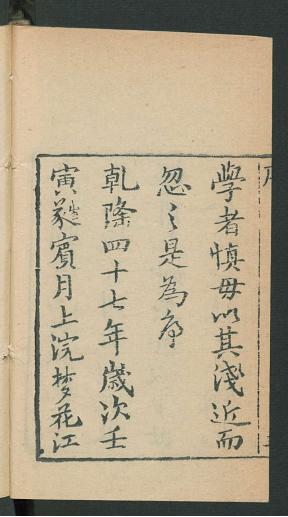 學者慎毋以其淺近而
忽之是為序
乾隆四十七年歲次壬
寅蕤賓月上浣夢花江